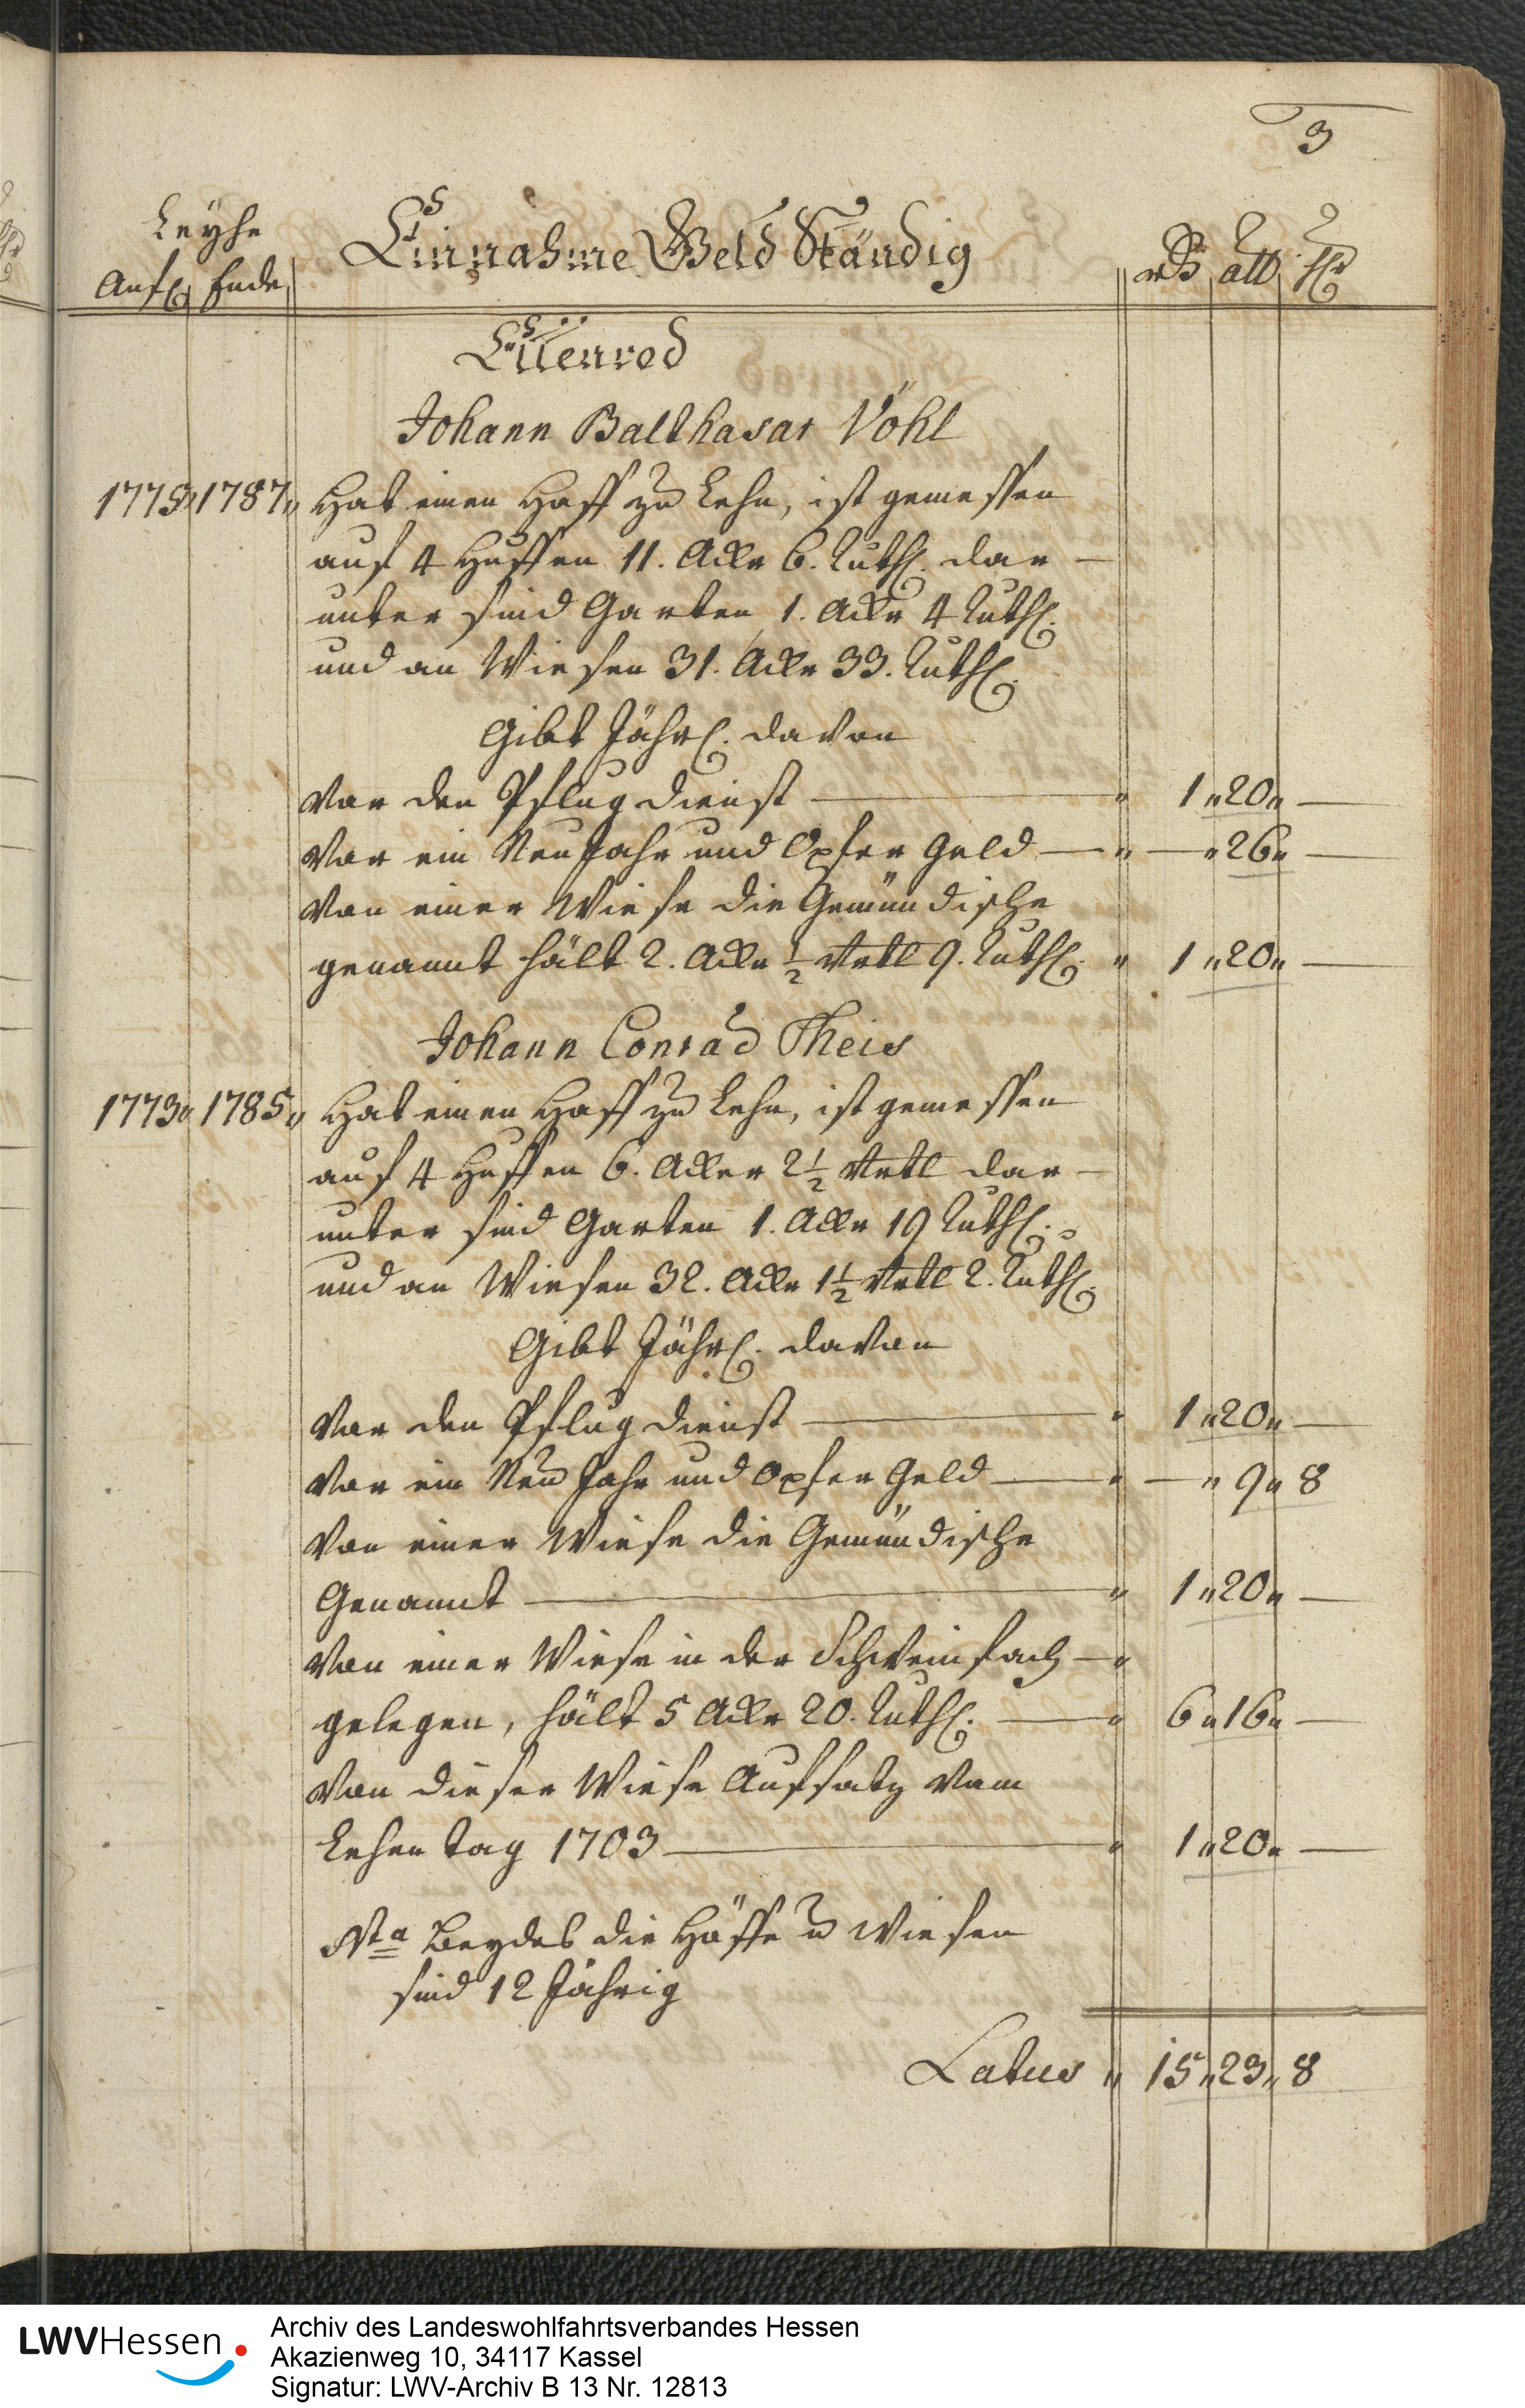 3
Leyhe
Anfg Ende
Einnahme Geld Ständig
rth alb hlr
Ellenrod
Johann Balthasar Vöhl
1775 1787 Hat einen Hoff zu Lehn, ist gemessen
auf 4 Huffen 11. Ackr 6. Ruth. dar-
unter sind Garten 1. Ackr 4 Ruth.
und an Wiesen 31. Ackr 33. Ruth.
Gibt Jährl. davon
Vor den Pflug dienst — " 1 " 20 " —
Vor ein Neu Jahr und Opfer Geld — " — " 26 " —
Von einer Wiese die Gemündische
genannt hält 2. Ackr ½ Vrtl 9. Ruth. " 1 " 20 " —
Johann Conrad Theis
1773 " 1785 " Hat einen Hoff zu Lehn, ist gemessen
auf 4 Huffen 6. Acker 2½ Vrtl dar-
unter sind Garten 1. Ackr 19 Ruth.
und an Wiesen 32. Ackr 1½ Vrtl 2. Ruth.
Gibt Jährl. davon
Vor den Pflug dienst — " 1 " 20 " —
Vor ein Neu Jahr und Opfer Geld — " — " 9 " 8
Von einer Wiese die Gemündische
Genannt — " 1 " 20 " —
Von einer Wiese in der Schweinfach — "
gelegen, hält 5 Ackr 20. Ruth. — " 6 " 16 " —
Von dieser Wiese Aufsatz vom
Lehen tag 1703 — " 1 " 20 " —
Nta Beydes die Höffe u Wiesen
sind 12 Jährig
Latus " 15 " 23 " 8
LWVHessen
Archiv des Landeswohlfahrtsverbandes Hessen
Akazienweg 10, 34117 Kassel
Signatur: LWV-Archiv B 13 Nr. 12813